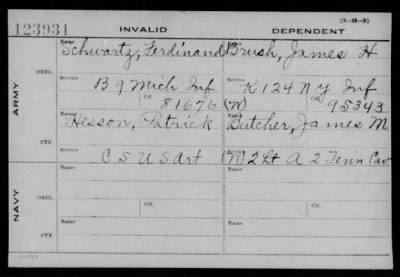 123931 INVALID DEPENDENT (3-H-5)
ARMY
ORIG.
Name Schwartz, Ferdinand Name Brush, James H
Service B 9 Mich Inf Service K 124 N Y Inf
Ctf. 81676 (W) Ctf. 95343
CTF.
Name Hesson, Patrick Name Butcher, James M
Service C 5 U S Art Service (M) 2 Lt A 2 Tenn Cav
NAVY
ORIG.
Name Name
Service Ctf. Service Ctf.
CTF.
Name Name
Service Service